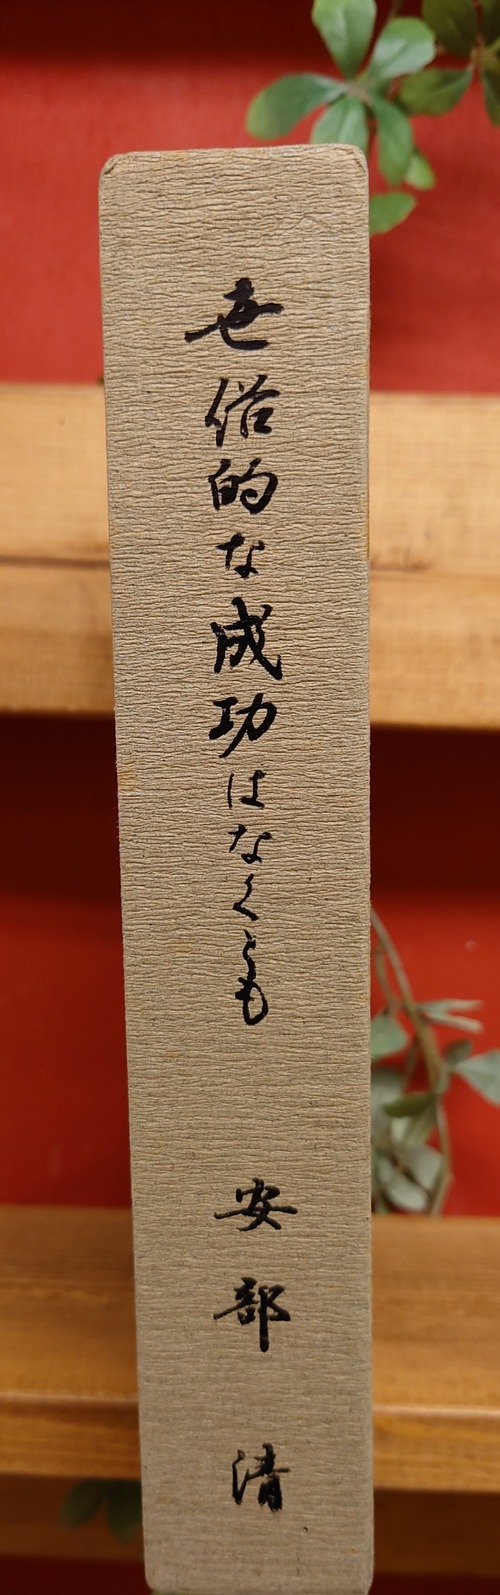 世俗的な成功はなくとも
安部 清